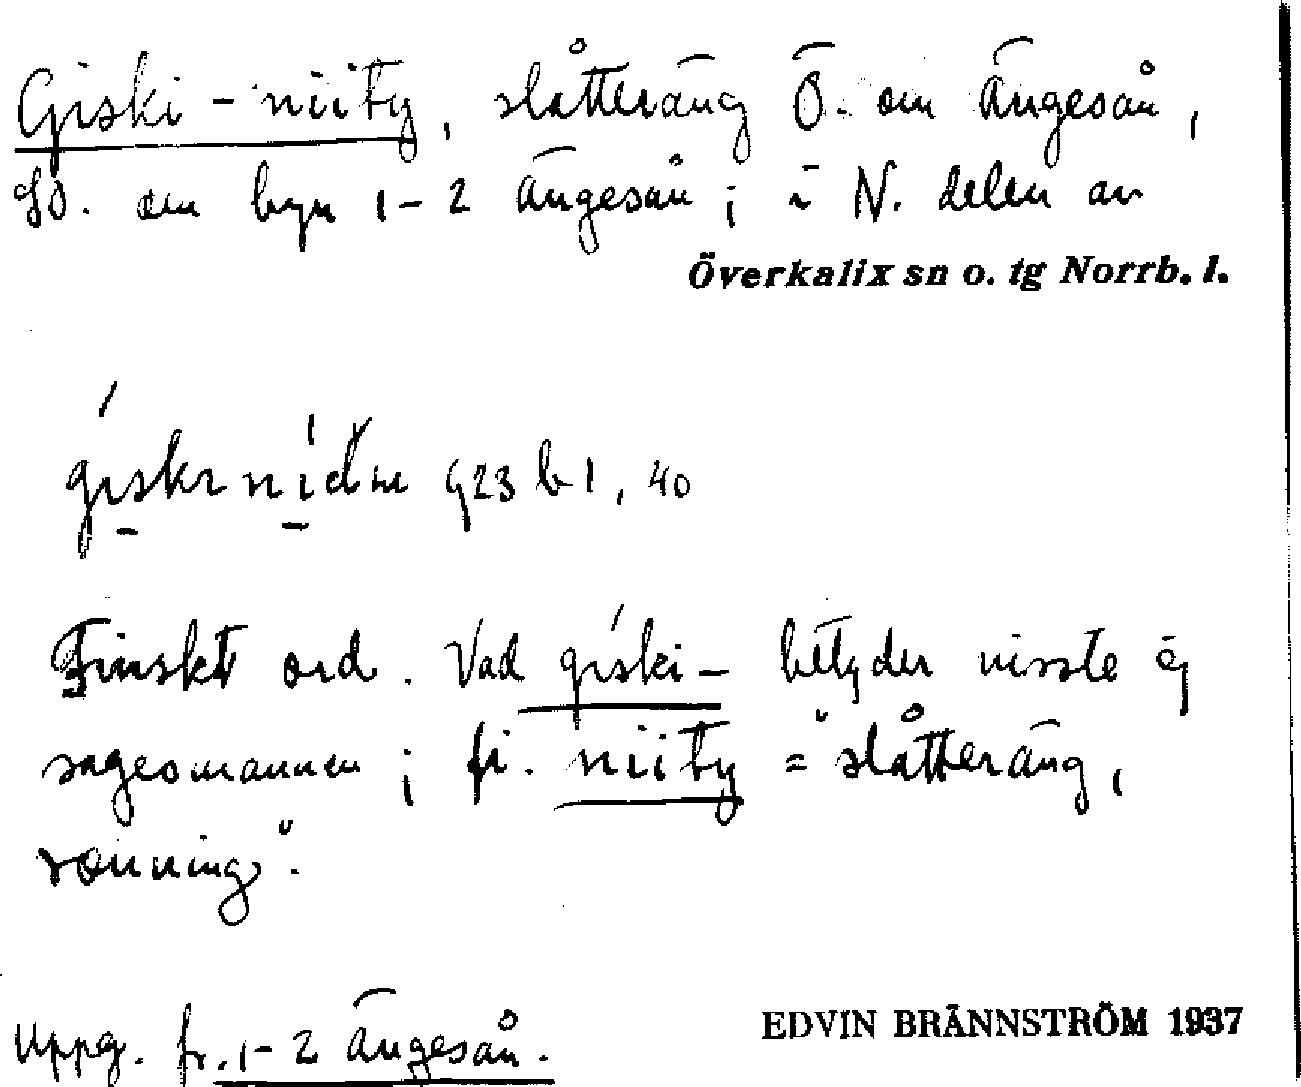 Giski-niity, slåtteräng Ö. om Ängesån,
SO. om byn 1-2 Ängesån; i N. delen av
Överkalix sn o. tg Norrb. l.
923 b 1, 40
Finskt ord. Vad giski- betyder visste ej
sagesmannen; fi. niity = "slåtteräng,
rönning".
Uppg. fr. 1-2 Ängesån.
EDVIN BRÄNNSTRÖM 1937